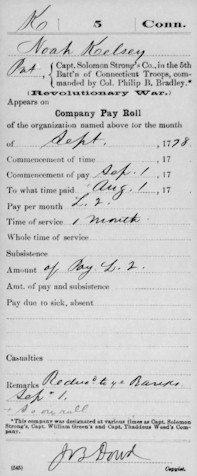 K 5 Conn.
Noah Kelsey
Pvt, { Capt. Solomon Strong's Co., in the 5th
Batt'n of Connecticut Troops, com-
manded by Col. Philip B. Bradley.*
(Revolutionary War.)
Appears on
Company Pay Roll
of the organization named above for the month
of Sept., 1778.
Commencement of time , 17
Commencement of pay Sep. 1, 17
To what time paid Aug 1, 17
Pay per month £.2.
Time of service 1 Month
Whole time of service
Subsistence
Amount of Pay £.2.
Amt. of pay and subsistence
Pay due to sick, absent
Casualties
Remarks
Sept 1.
*This company was designated at various times as Capt. Solomon
Strong's, Capt. William Green's and Capt. Thaddeus Weed's Com-
pany.
J B Dowd
(546) Copyist.